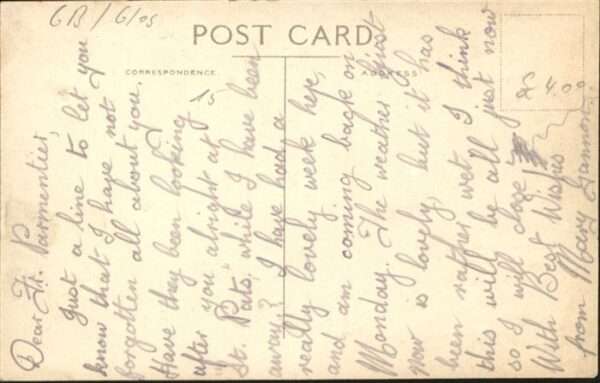 GB / Glos
POST CARD
CORRESPONDENCE
ADDRESS
4.00
Dear Fr. Parmentier,
Just a line to let you
know that I have not
forgotten all about you.
Have they been looking
after you alright at
St. Pats, while I have been
away? I have had a
really lovely week here,
and am coming back on
Monday. The weather just
now is lovely, but it has
been rather wet I think
this will be all just now
so I will close
With Best Wishes
from Mary Gannon.